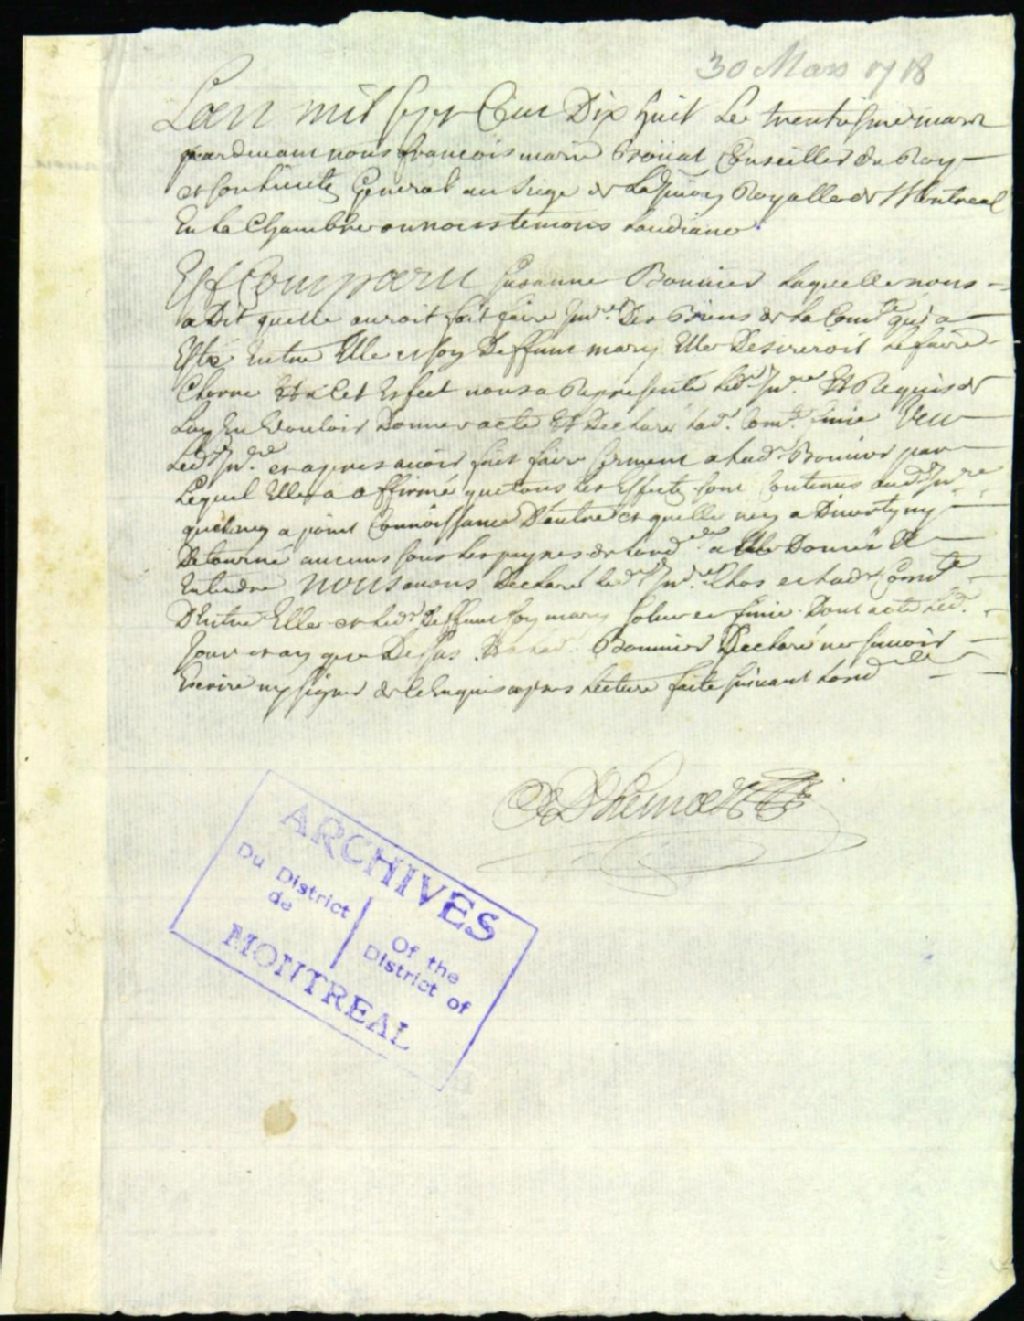 30 Mars 1718
Lan mil sept Cens Dix huit Le trentiesme mars
pardevant nous francois marie Boüat Conseiller du Roy
et Lieutenant General au siege de La Juridiction Royalle de Montreal
En La Chambre ou nous tenons Laudiance
Est Comparu Susanne Bonnier Laquelle nous
a Dit quelle auroit fait faire Inv.re Des Biens de La Com.té qui a
Esté Entre Elle et son Deffunt mary Elle Desireroit Le faire
Clorre Et a Cet Effect nous a Representé Led. Inv.re Et Requis de
Luy En Vouloir Donner acte Et Declarer lad. Com.té finie Veu
Led. Inv.re et apres avoir fait faire serment a Lad. Bonnier par
Lequel Elle a affirmé que tous les Effects sont Contenus aud. Inv.re
quelle ny a point Connoissance D'autre et quelle ny a Diverty ny
Detourné aucuns sous Les peynes de Lord.ce a Elle Donné a
Entendre nous avons Declaré Led. Inv.re Clos et lad. Com.té
D'Entre Elle et led. Deffunt son mary solue et finie Dont acte Led.
Jour et an que Dessus Lad. Bonnier Declaré ne scavoir
Escrire ny signer de ce Enquis apres Lecture faite suivant Lord.ce
Adhemar
ARCHIVES
Du District
de
Of the
District of
MONTREAL